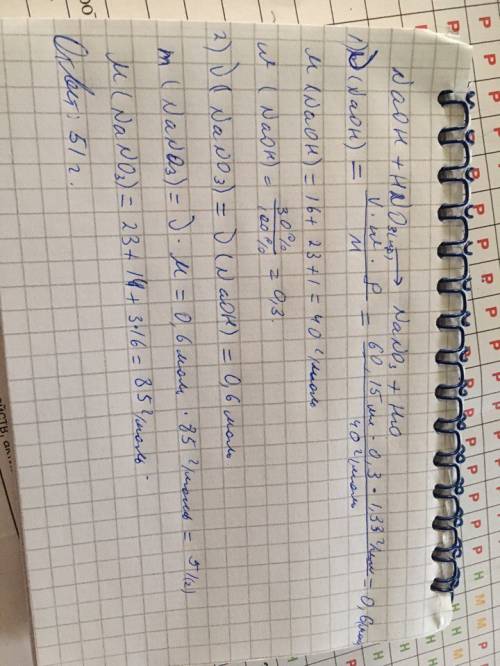 NaOH + HNO₃(изб) → NaNO₃ + H₂O
1) ν(NaOH) = V·w·ρ / M = 60,15 мл · 0,3 · 1,33 г/мл / 40 г/моль = 0,6 моль
M(NaOH) = 16 + 23 + 1 = 40 г/моль
w(NaOH) = 30% / 100% = 0,3.
2) ν(NaNO₃) = ν(NaOH) = 0,6 моль
m(NaNO₃) = ν · M = 0,6 моль · 85 г/моль = 51(г)
M(NaNO₃) = 23 + 14 + 3·16 = 85 г/моль.
Ответ: 51 г.